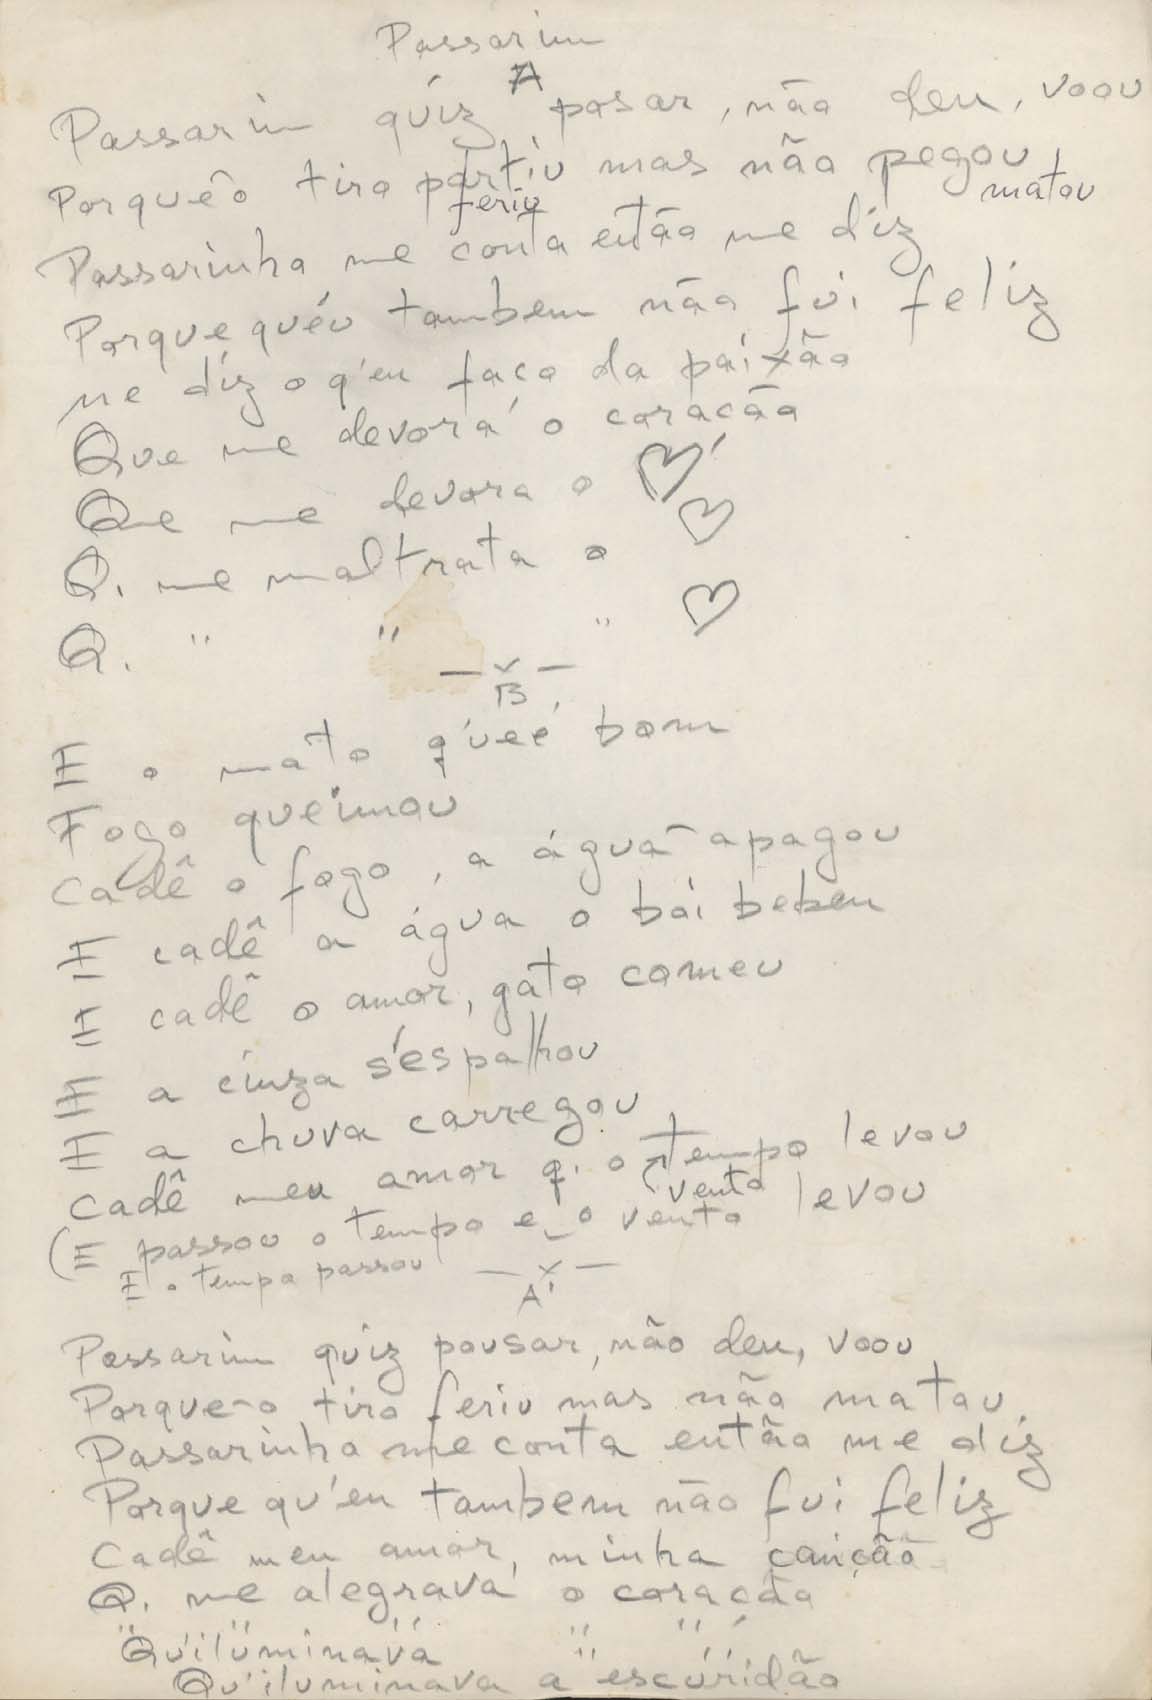 Passarim
A
Passarim quiz posar, não deu, voou
Porquê o tiro partiu mas não pegou
feriu matou
Passarinho me conta então me diz
Porque qu'eu tambem não fui feliz
me diz o q'eu faço da paixão
Que me devora o coração
Que me devora o
Q. me maltrata o
Q. " " "
— x —
B
E o mato que é bom
Fogo queimou
Cadê o fogo, a água apagou
E cadê a água o boi bebeu
E cadê o amor, gato comeu
E a cinza s'espalhou
E a chuva carregou
Cadê meu amor q. o tempo levou
vento
(E passou o tempo e o vento levou
E o tempo passou
— x —
A'
Passarim quiz pousar, não deu, voou
Porque o tiro feriu mas não matou
Passarinho me conta então me diz
Porque qu'eu tambem não fui feliz
Cadê meu amor, minha canção
Q. me alegrava o coração
" " " " "
Qu'iluminava " "
Qu'iluminava a escuridão